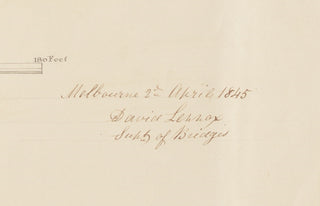 180 Feet
Melbourne 2nd April 1845
David Lennox
Supt. of Bridges